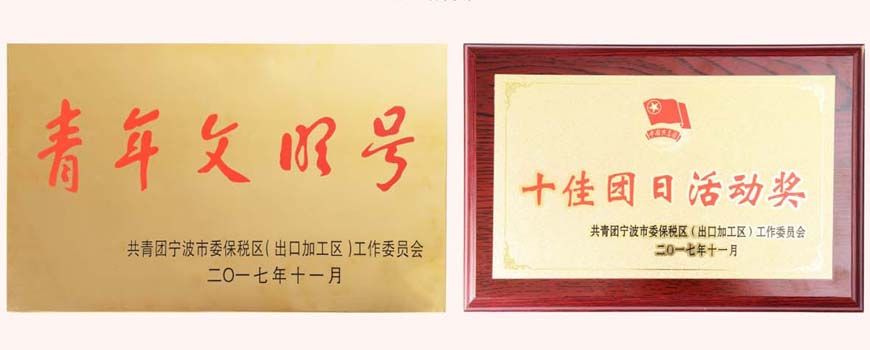 青年文明号
共青团宁波市委保税区(出口加工区)工作委员会
二〇一七年十一月
十佳团日活动奖
共青团宁波市委保税区(出口加工区)工作委员会
二〇一七年十一月